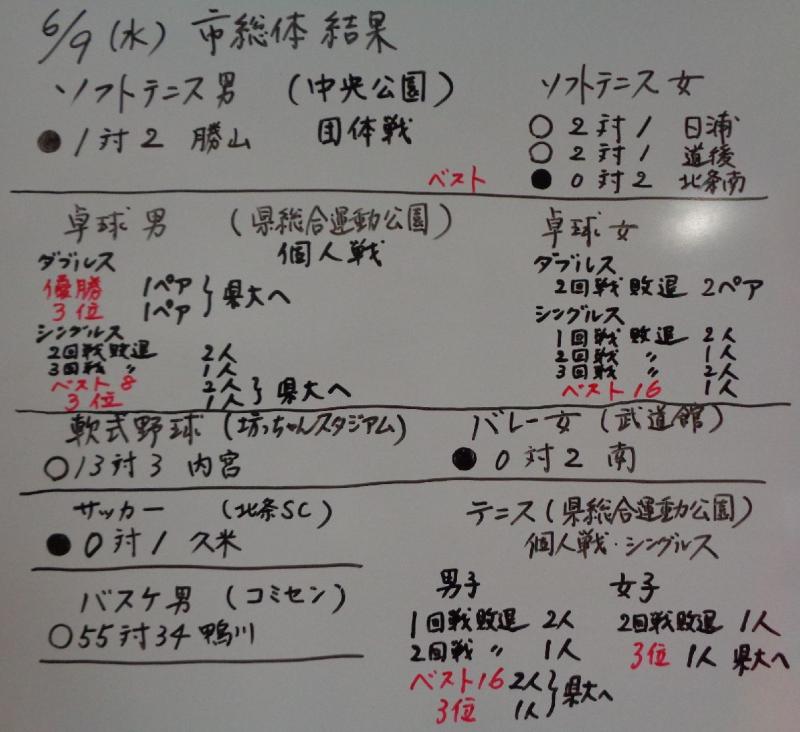 6/9(水) 市総体 結果
ソフトテニス男 (中央公園)
● 1対2 勝山 団体戦
ソフトテニス 女
○ 2対1 日浦
○ 2対1 道後
ベスト
● 0対2 北条南
卓球男 (県総合運動公園)
個人戦
ダブルス
優勝 1ペア
3位 1ペア } 県大へ
シングルス
2回戦敗退 2人
3回戦 〃 1人
ベスト8 2人
3位 1人 } 県大へ
卓球女
ダブルス
2回戦敗退 2ペア
シングルス
1回戦敗退 2人
2回戦 〃 1人
3回戦 〃 2人
ベスト16 1人
軟式野球 (坊っちゃんスタジアム)
○13対3 内宮
バレー女 (武道館)
● 0対2 南
サッカー (北条SC)
● 0対1 久米
バスケ男 (コミセン)
○55対34 鴨川
テニス (県総合運動公園)
個人戦・シングルス
男子
1回戦敗退 2人
2回戦 〃 1人
ベスト16 2人
3位 1人 } 県大へ
女子
2回戦敗退 1人
3位 1人 県大へ